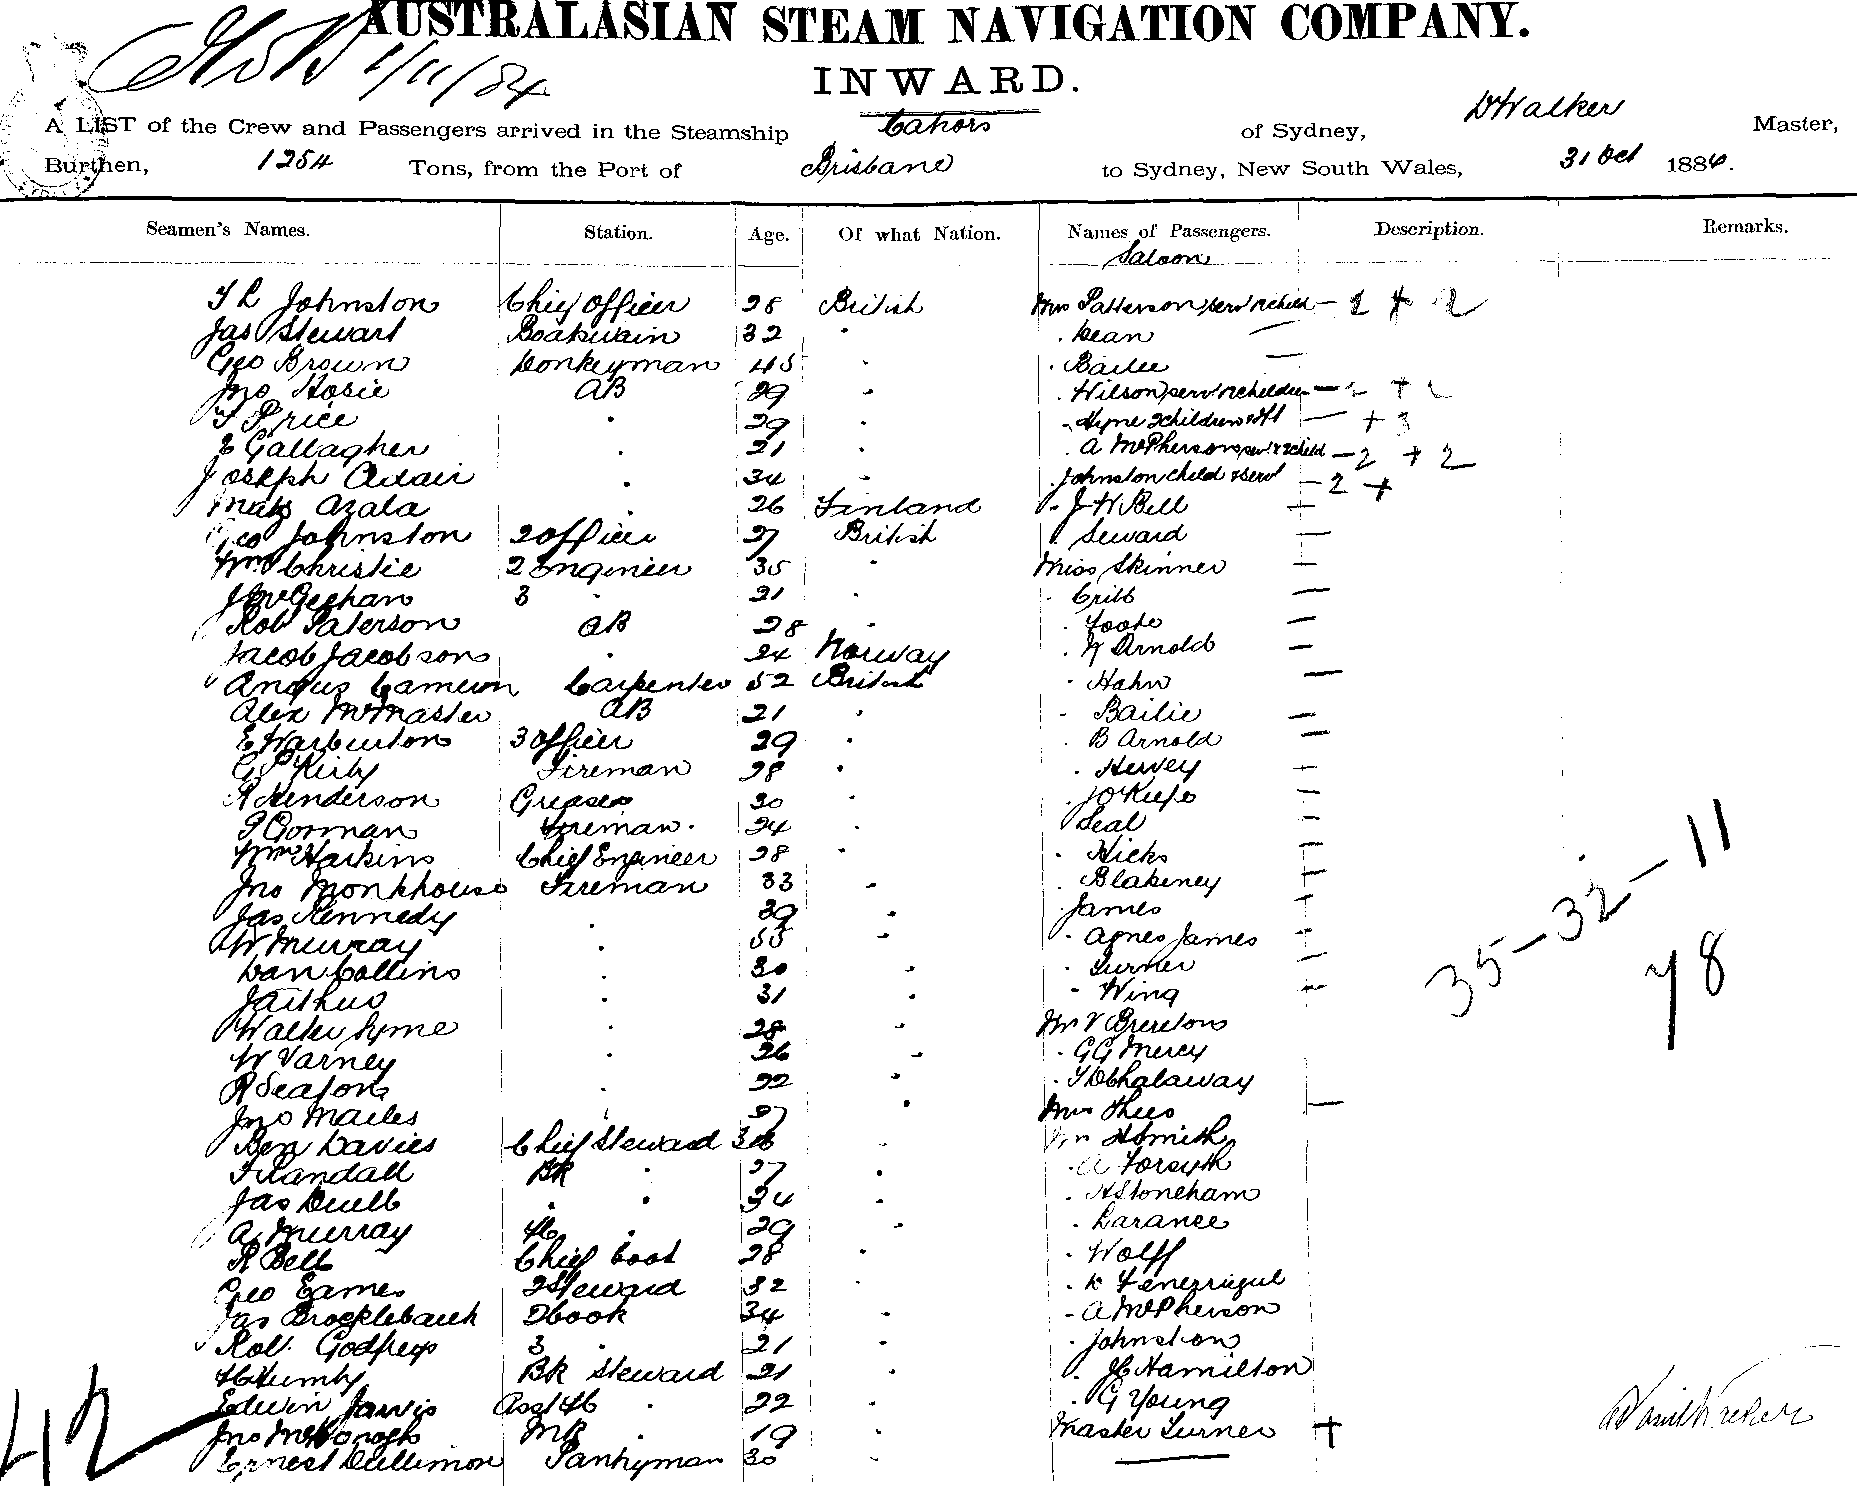 AUSTRALASIAN STEAM NAVIGATION COMPANY.
1/11/84
INWARD.
A LIST of the Crew and Passengers arrived in the Steamship Cahors of Sydney, D Walker Master,
Burthen, 1254 Tons, from the Port of Brisbane to Sydney, New South Wales, 31 Oct 1884.
Seamen's Names. Station. Age. Of what Nation. Names of Passengers. Description. Remarks.
Saloon
T L Johnston Chief Officer 28 British Mrs Patterson serv & child — 2 + 2
Jas Stewart Boatswain 32 " Dean —
Geo Brown Donkeyman 45 " Bailee —
Jno Hosie AB 29 " Wilson serv & children —
T Price " 29 " Hyne 2 children — + 3
E Gallagher " 21 " A McPherson serv & 2 child — 2 + 2
Joseph Adair " 34 " Johnston child & serv — 2 +
Azala " 26 Finland J H Bell
Geo Johnston 2 Officer 27 British Seward —
Wm Christie 2 Engineer 35 " Miss Skinner —
J McGeehan 3 " 21 " Cribb —
Rob Paterson AB 28 " Foote —
Jacob Jacobson " 24 Norway Arnold —
Angus Cameron Carpenter 52 British Hahn —
Alex McMaster AB 21 " Bailie —
E Warburton 3 Officer 29 " B Arnold —
G P Kirby Fireman 28 " Hervey —
R Henderson Greaser 30 " J O'Keefe —
Gorman Fireman 24 " Seal —
Wm Harkins Chief Engineer 28 " Hicks
Jno Monkhouse Fireman 33 " Blakeney
Jas Kennedy " 39 " James
W Murray " 55 " Agnes James
Dan Collins " 30 " Turner —
" 31 " Wing
Walter Syme " 28 " Mr V Brereton
W Varney " 26 " G G Mercy
R Seaton " 22 " Chalaway
Jno Mailes " 27 " Mrs Thees —
Ben Davies Chief Steward 36 " Mr H Smith
F Randall BR " 27 " A Forsyth
Jas Duell " " 34 " H Stoneham
A Murray " 29 " Larance
R Bell Chief Cook 28 " Wolff
Geo Eames 2 Steward 32 "
Jas Brocklebank 2 Cook 34 " A McPherson
Robt. Godfrey 3 " 21 " Johnston
BR Steward 21 " Hamilton
Edwin Jarvis " 22 " G Young
Jno McDonogh MR " 19 " Master Turner +
Ernest Dullimon Pantryman 30 "
35 – 32 – 11
78
42